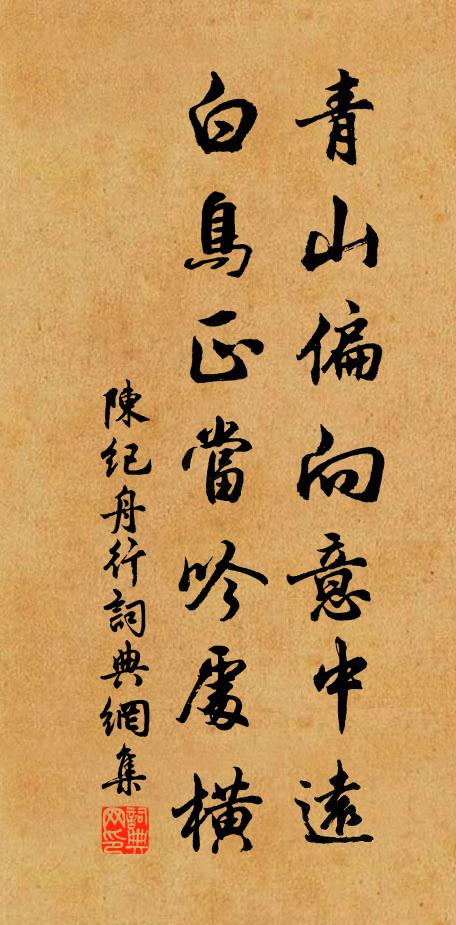 青山偏向意中遠
白鳥正當吟處橫
陳紀舟行詞典網集
詞典網印